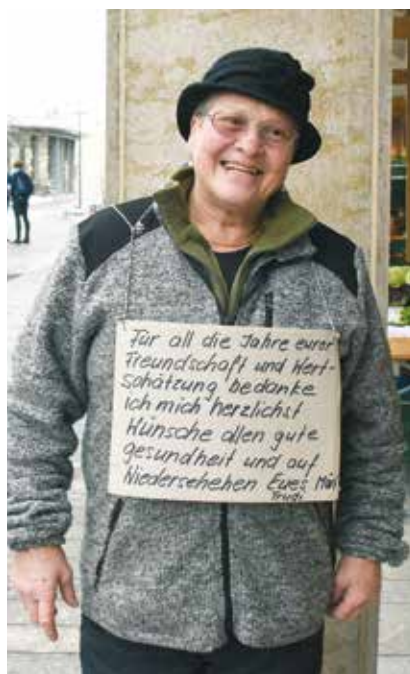 Für all die Jahre eurer
Freundschaft und Wert-
schätzung bedanke
ich mich herzlichst
Wünsche allen gute
gesundheit und auf
Wiedersehehen Eues
Trudi